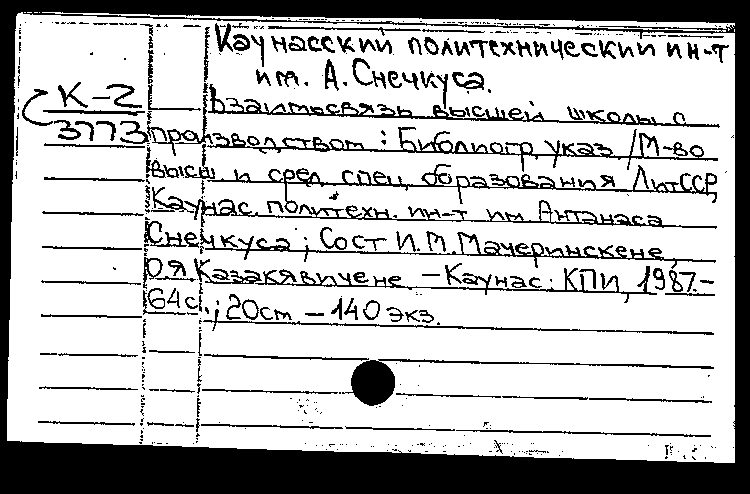 Каунасский политехнический ин-т
им. А. Снечкуса.
К-2
3773
Взаимосвязь высшей школы с
производством : Библиогр. указ. / М-во
высш. и сред. спец. образования ЛитССР,
Каунас. политехн. ин-т им. Антанаса
Снечкуса ; Сост. И. М. Мачеринскене,
О.Я. Казакявичене. — Каунас : КПИ, 1987.-
64с. ; 20см — 140 экз.